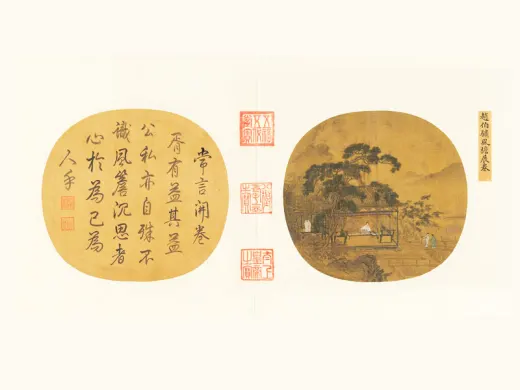 趙伯驌風檐展卷
常言開卷
胥有益其益
公私亦自殊不
識風簷沉思者
心於為己為
人乎